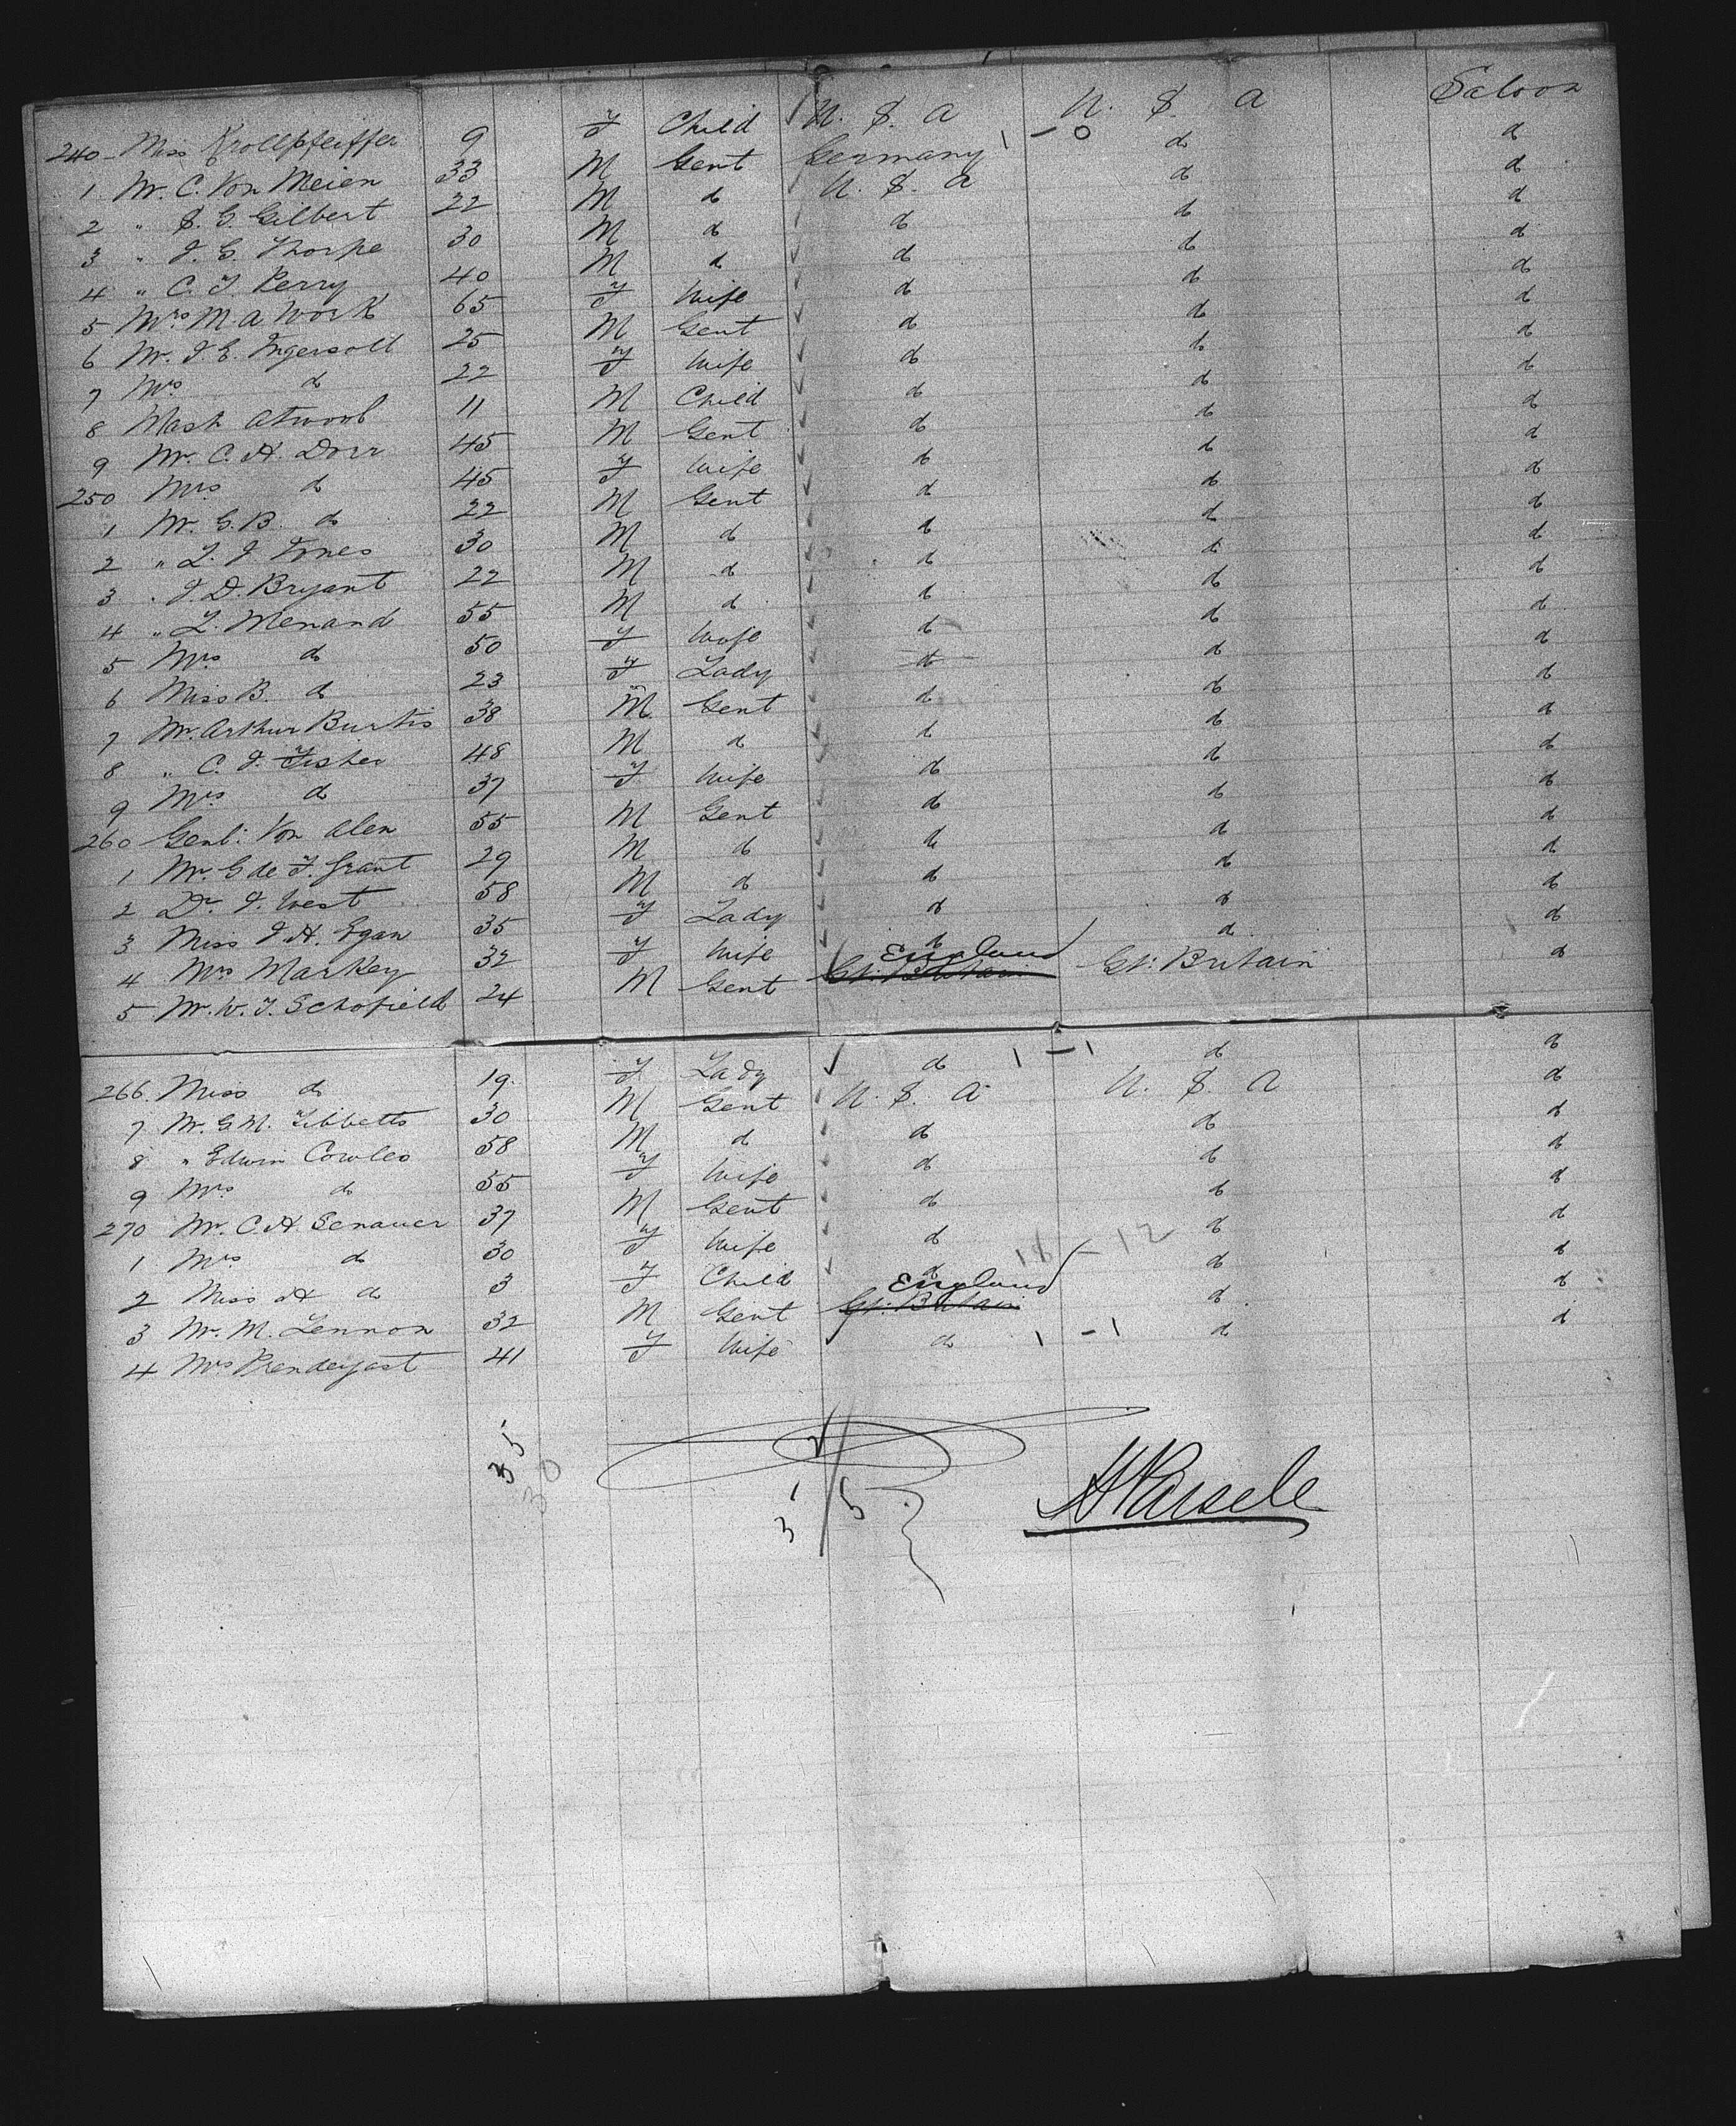 240 Miss Krollpfeiffer 9 F Child U.S.A U.S.A Saloon
1 Mr. C. Von Meien 33 M Gent Germany 1 - 0 d d
2 " S. G. Gilbert 22 M d U.S.A d d
3 " J. G. Thorpe 30 M d d d d
4 " C. F. Perry 40 M d d d d
5 Mrs M. A Work 65 F Wife d d d
6 Mr. J. E. Ingersoll 25 M Gent d d d
7 Mrs d 22 F Wife d d d
8 Mast Atwood 11 M Child d d d
9 Mr. C. H. Dorr 45 M Gent d d d
250 Mrs d 45 F Wife d d d
1 Mr. G. B. d 22 M Gent d d d
2 " L. J. Jones 30 M d d d d
3 " J. D. Bryant 22 M d d d d
4 " L. Menand 55 M d d d d
5 Mrs d 50 F Wife d d d
6 Miss B. d 23 F Lady d d d
7 Mr. Arthur Burtis 38 M Gent d d d
8 " C. J. Fisher 48 M d d d d
9 Mrs d 37 F Wife d d d
260 Genl: Von Alen 55 M Gent d d d
1 Mr. G de F. Grant 29 M d d d d
2 Dr. J. West 58 M d d d d
3 Miss J. H. Egan 35 F Lady d d d
4 Mrs Markey 32 F Wife d d d
5 Mr. W. F. Schofield 24 M Gent England Gt: Britain Gt: Britain d
266. Miss d 19. F Lady d 1 - 1 d d
7 Mr. G. M. Tibbetts 30 M Gent U.S.A U.S.A d
8 " Edwin Cowles 58 M d d d d
9 Mrs d 55 F Wife d d d
270 Mr. C. H. Senauer 37 M Gent d d d
1 Mrs d 30 F Wife d d d
2 Miss H d 3 F Child d d d
3 Mr. M. Lennon 32 M Gent England Gt: Britain d d
4 Mrs Prendergast 41 F Wife d 1 - 1 d d
35
30